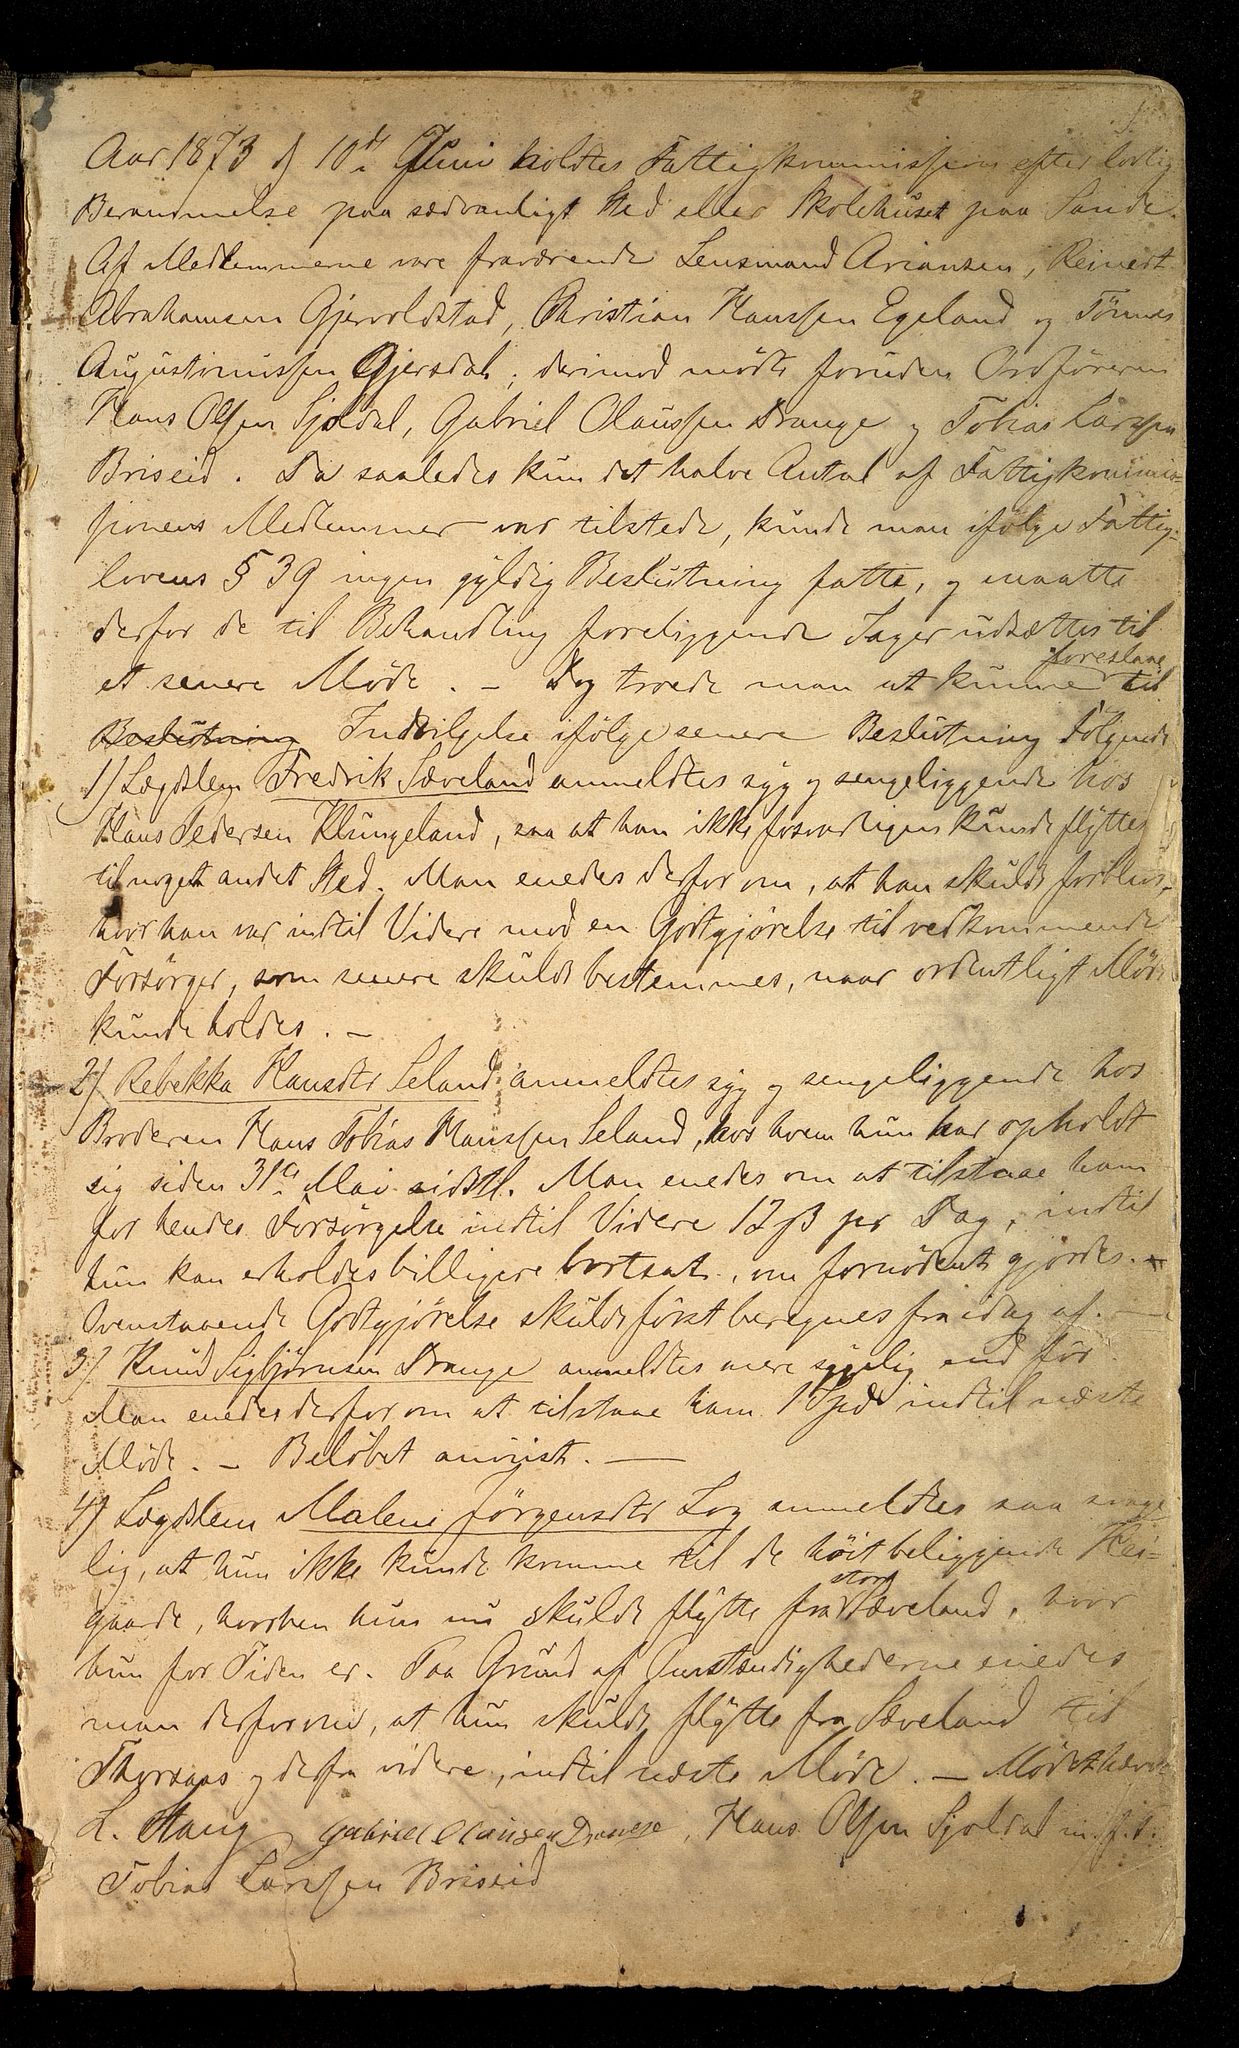 Aar 1873 d 10de Juni holdtes Fattigkommission efter lovlig
Berammelse paa sædvanligt Sted eller Skolehuset paa Sande.
Af Medlemmerne vare fraværende Lensmand Ariansen, Reinert
Abrahamsen Gjervoldstad, Christian Hanssen Egeland og Tønnes
Augustinussen Gjersdal; derimod mødte foruden Ordføreren
Hans Olsen Sjoldal, Gabriel Olaussen Drange og Tobias Larssen
Briseid. Da saaledes kun det halve Antal af Fattigkommis-
sionens Medlemmer var tilstede, kunde man ifølge Fattig-
lovens § 39 ingen gyldig Beslutning fatte, og maatte
derfor de til Behandling foreliggende Sager udsættes til
et senere Møde. – Dog troede man at kunne foreslaae til
Beslutning Indvilgelse ifølge senere Beslutning Følgende
1) Lægdslem Fredrik Sæveland anmeldtes syg og sengeliggende hos
Hans Pedersen Klungeland, saa at han ikke forsvarligen kunde flyttes
til noget andet Sted. Man enedes derfor om, at han skulde forblive,
hvor han var indtil Videre mod en Godtgjørelse til vedkommende
Forsørger, som senere skulde bestemmes, naar ordentligt Møde
kunde holdes. –
2) Rebekka Hansdtr Seland anmeldtes syg og sengeliggende hos
Broderen Hans Tobias Hanssen Seland, hos hvem hun har opholdt
sig siden 31te Mai sidstl. Man enedes om at tilstaae ham
for hendes Forsørgelse indtil Videre 12 ß pr Dag, indtil
hun kan erholdes billigere bortsat, om fornødent gjordes. –
Ovenstaaende Godtgjørelse skulde først beregnes fra idag af. –
3) Knud Sigbjørnsen Drange anmeldtes mere sygelig end før.
Man enedes derfor om at tilstaae ham 1 Spd indtil næste
Møde. – Beløbet anvist. –
4) Lægdslem Malene Jørgensdtr Log anmeldtes saa svage
lig, at hun ikke kunde komme til de høit beliggende Hei-
gaarde, hvorhen hun nu skulde flytte fra store Sæveland, hvor
hun for Tiden er. Paa Grund af Omstændighederne enedes
man derfor om, at hun skulde flytte fra Sæveland til
Thorsaas og derfra videre, indtil næste Møde. – Mødet hævet
L. Stang Gabriel Olausen Drange, Hans Olsen Sjoldal m. f. P.
Tobias Larssen Briseid